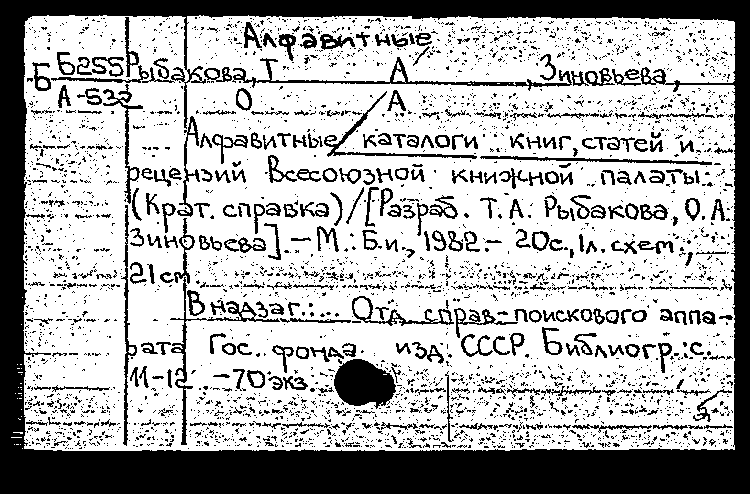 Алфавитные
Б Б255 Рыбакова, Т А , Зиновьева,
А-532 О А
Алфавитные каталоги книг, статей и
рецензий Всесоюзной книжной палаты:
(Крат. справка) / [Разраб. Т.А. Рыбакова, О.А.
Зиновьева]. — М.: Б.и., 1982. - 20с., 1л. схем.;
21см.
В надзаг.:... Отд справ-поискового аппа-
рата Гос. фонда изд. СССР. Библиогр.: с.
11-12 - 70 экз.